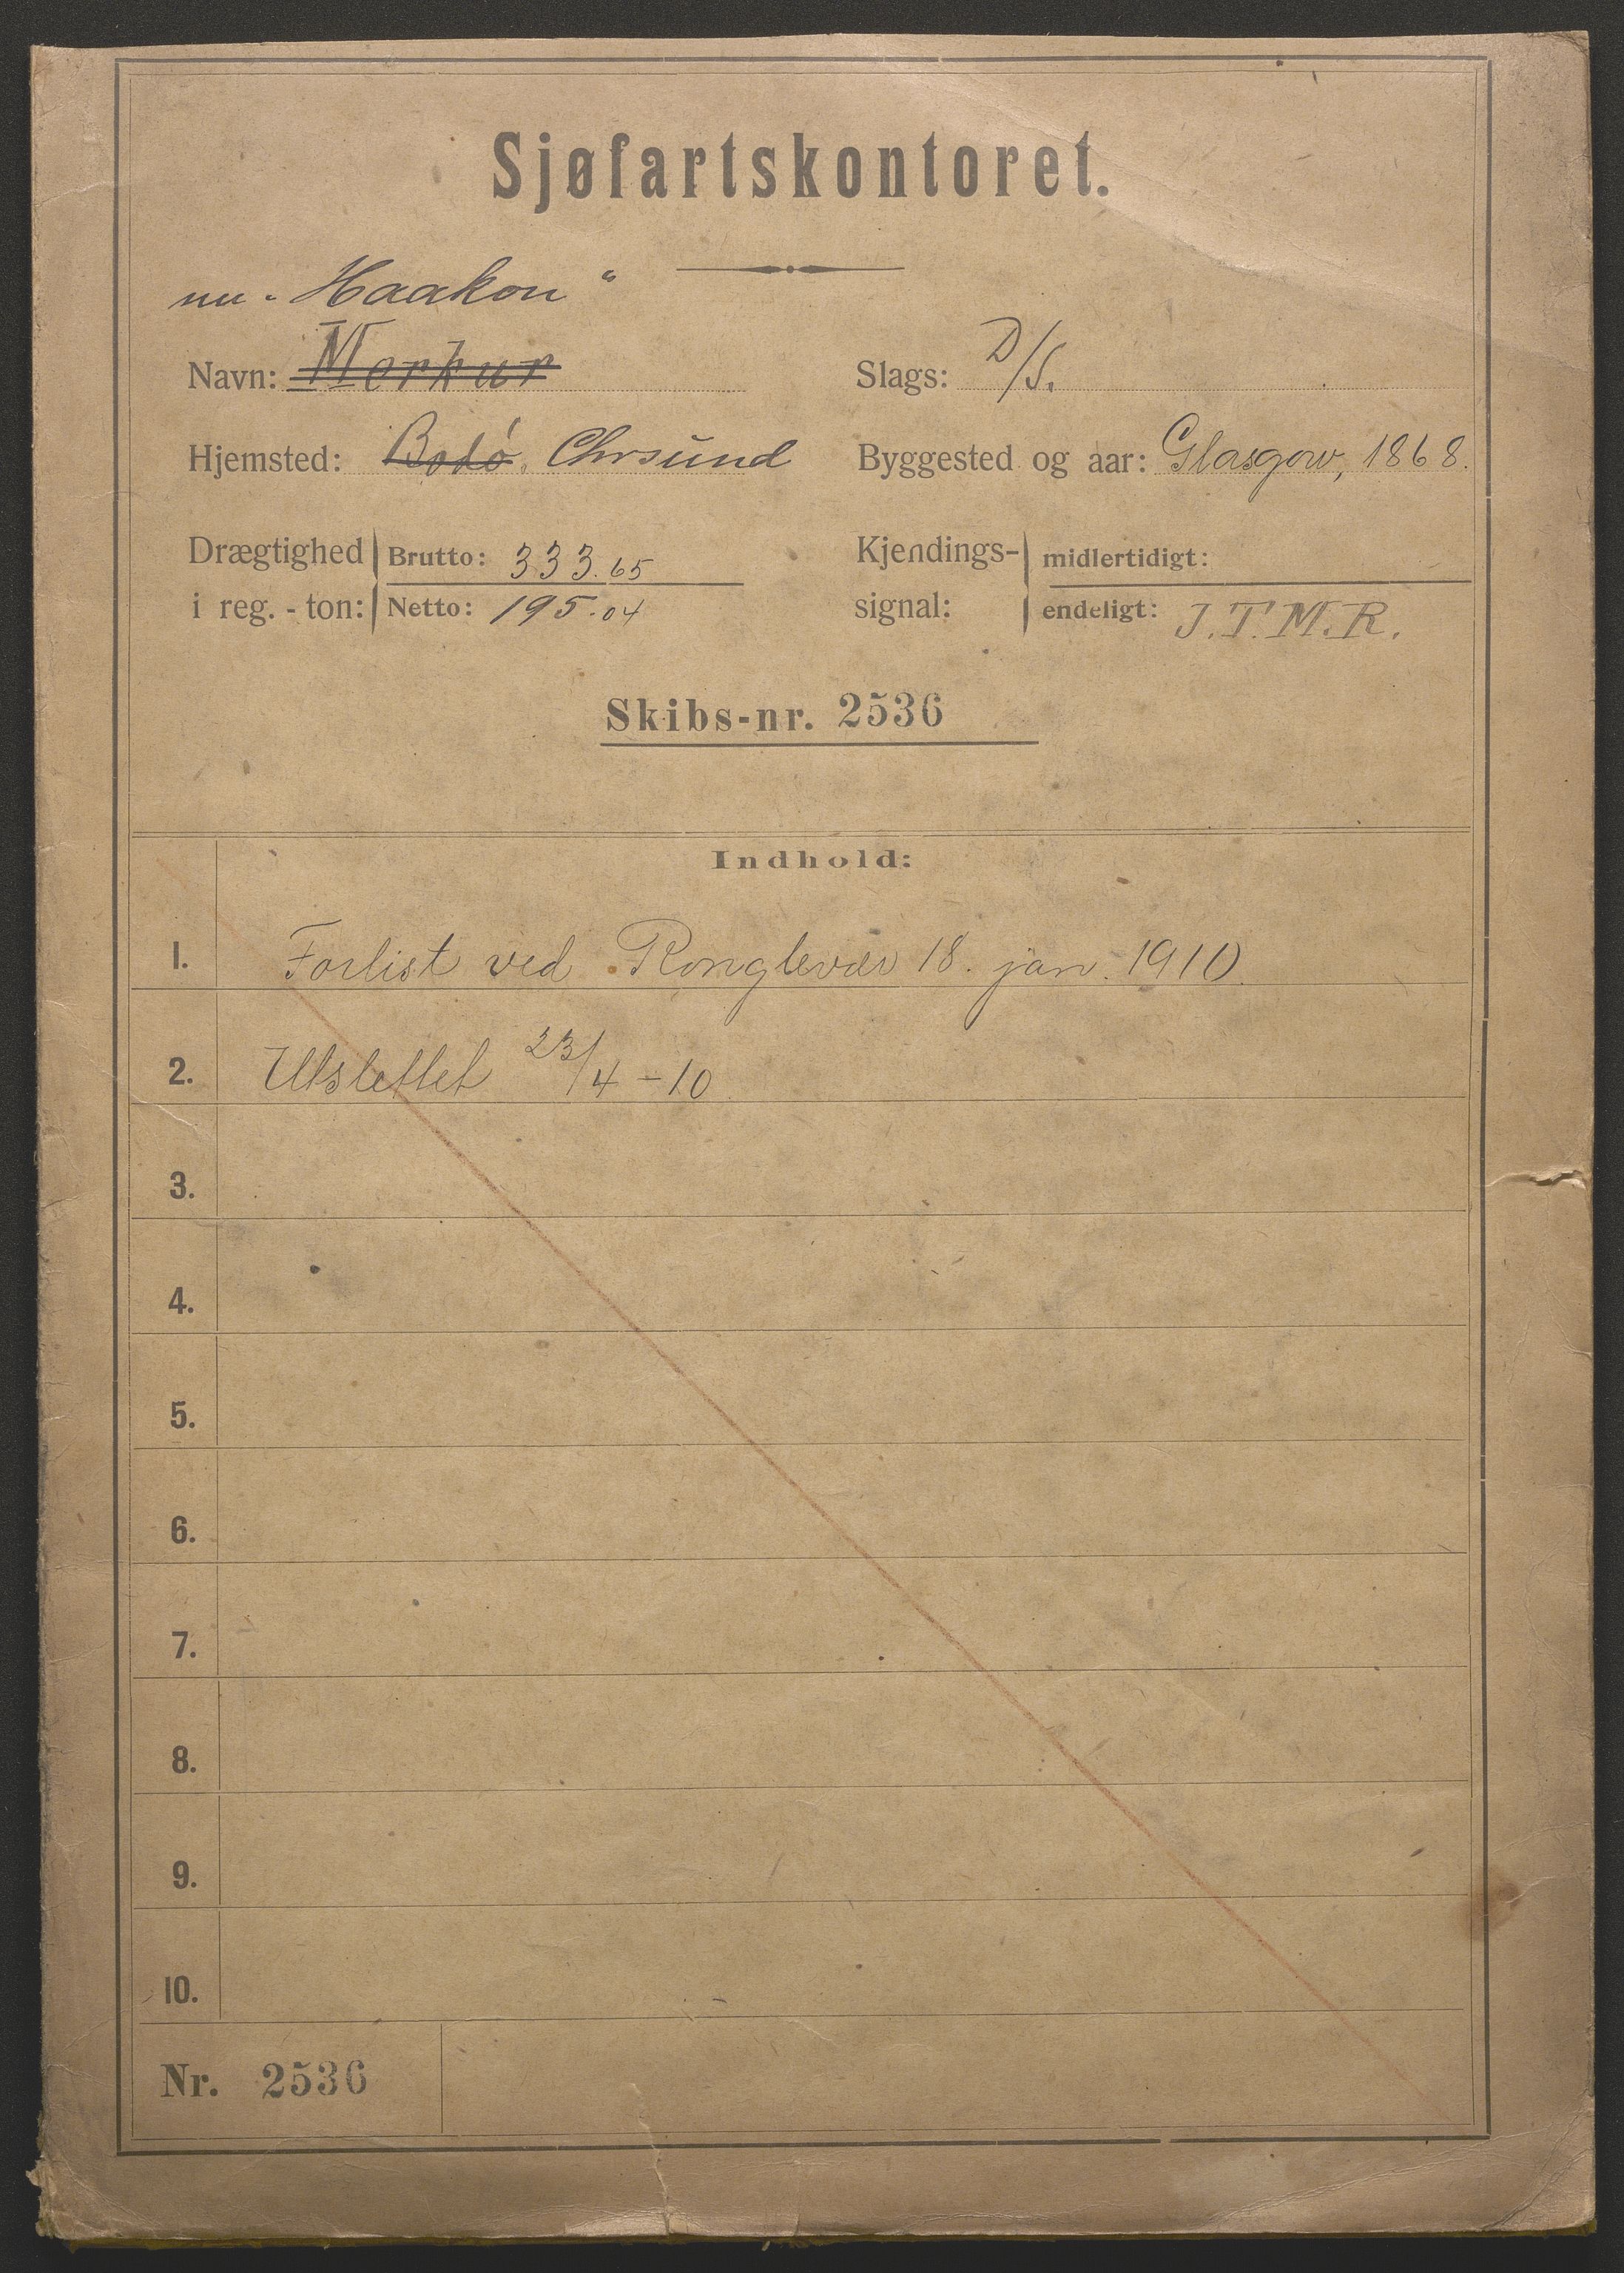 Sjøfartskontoret.
nu "Haakon"
Navn: Merkur
Slags: D/S.
Hjemsted: Bodø. Chrsund
Byggested og aar: Glasgow, 1868.
Drægtighed i reg.-ton: Brutto: 333.65
Netto: 195.04
Kjendings-signal: midlertidigt:
endeligt: J.T.M.R.
Skibs-nr. 2536
Indhold:
1. Forlist ved Ronglevær 18. jan. 1910.
2. Utslettet 23/4-10.
3.
4.
5.
6.
7.
8.
9.
10.
Nr. 2536